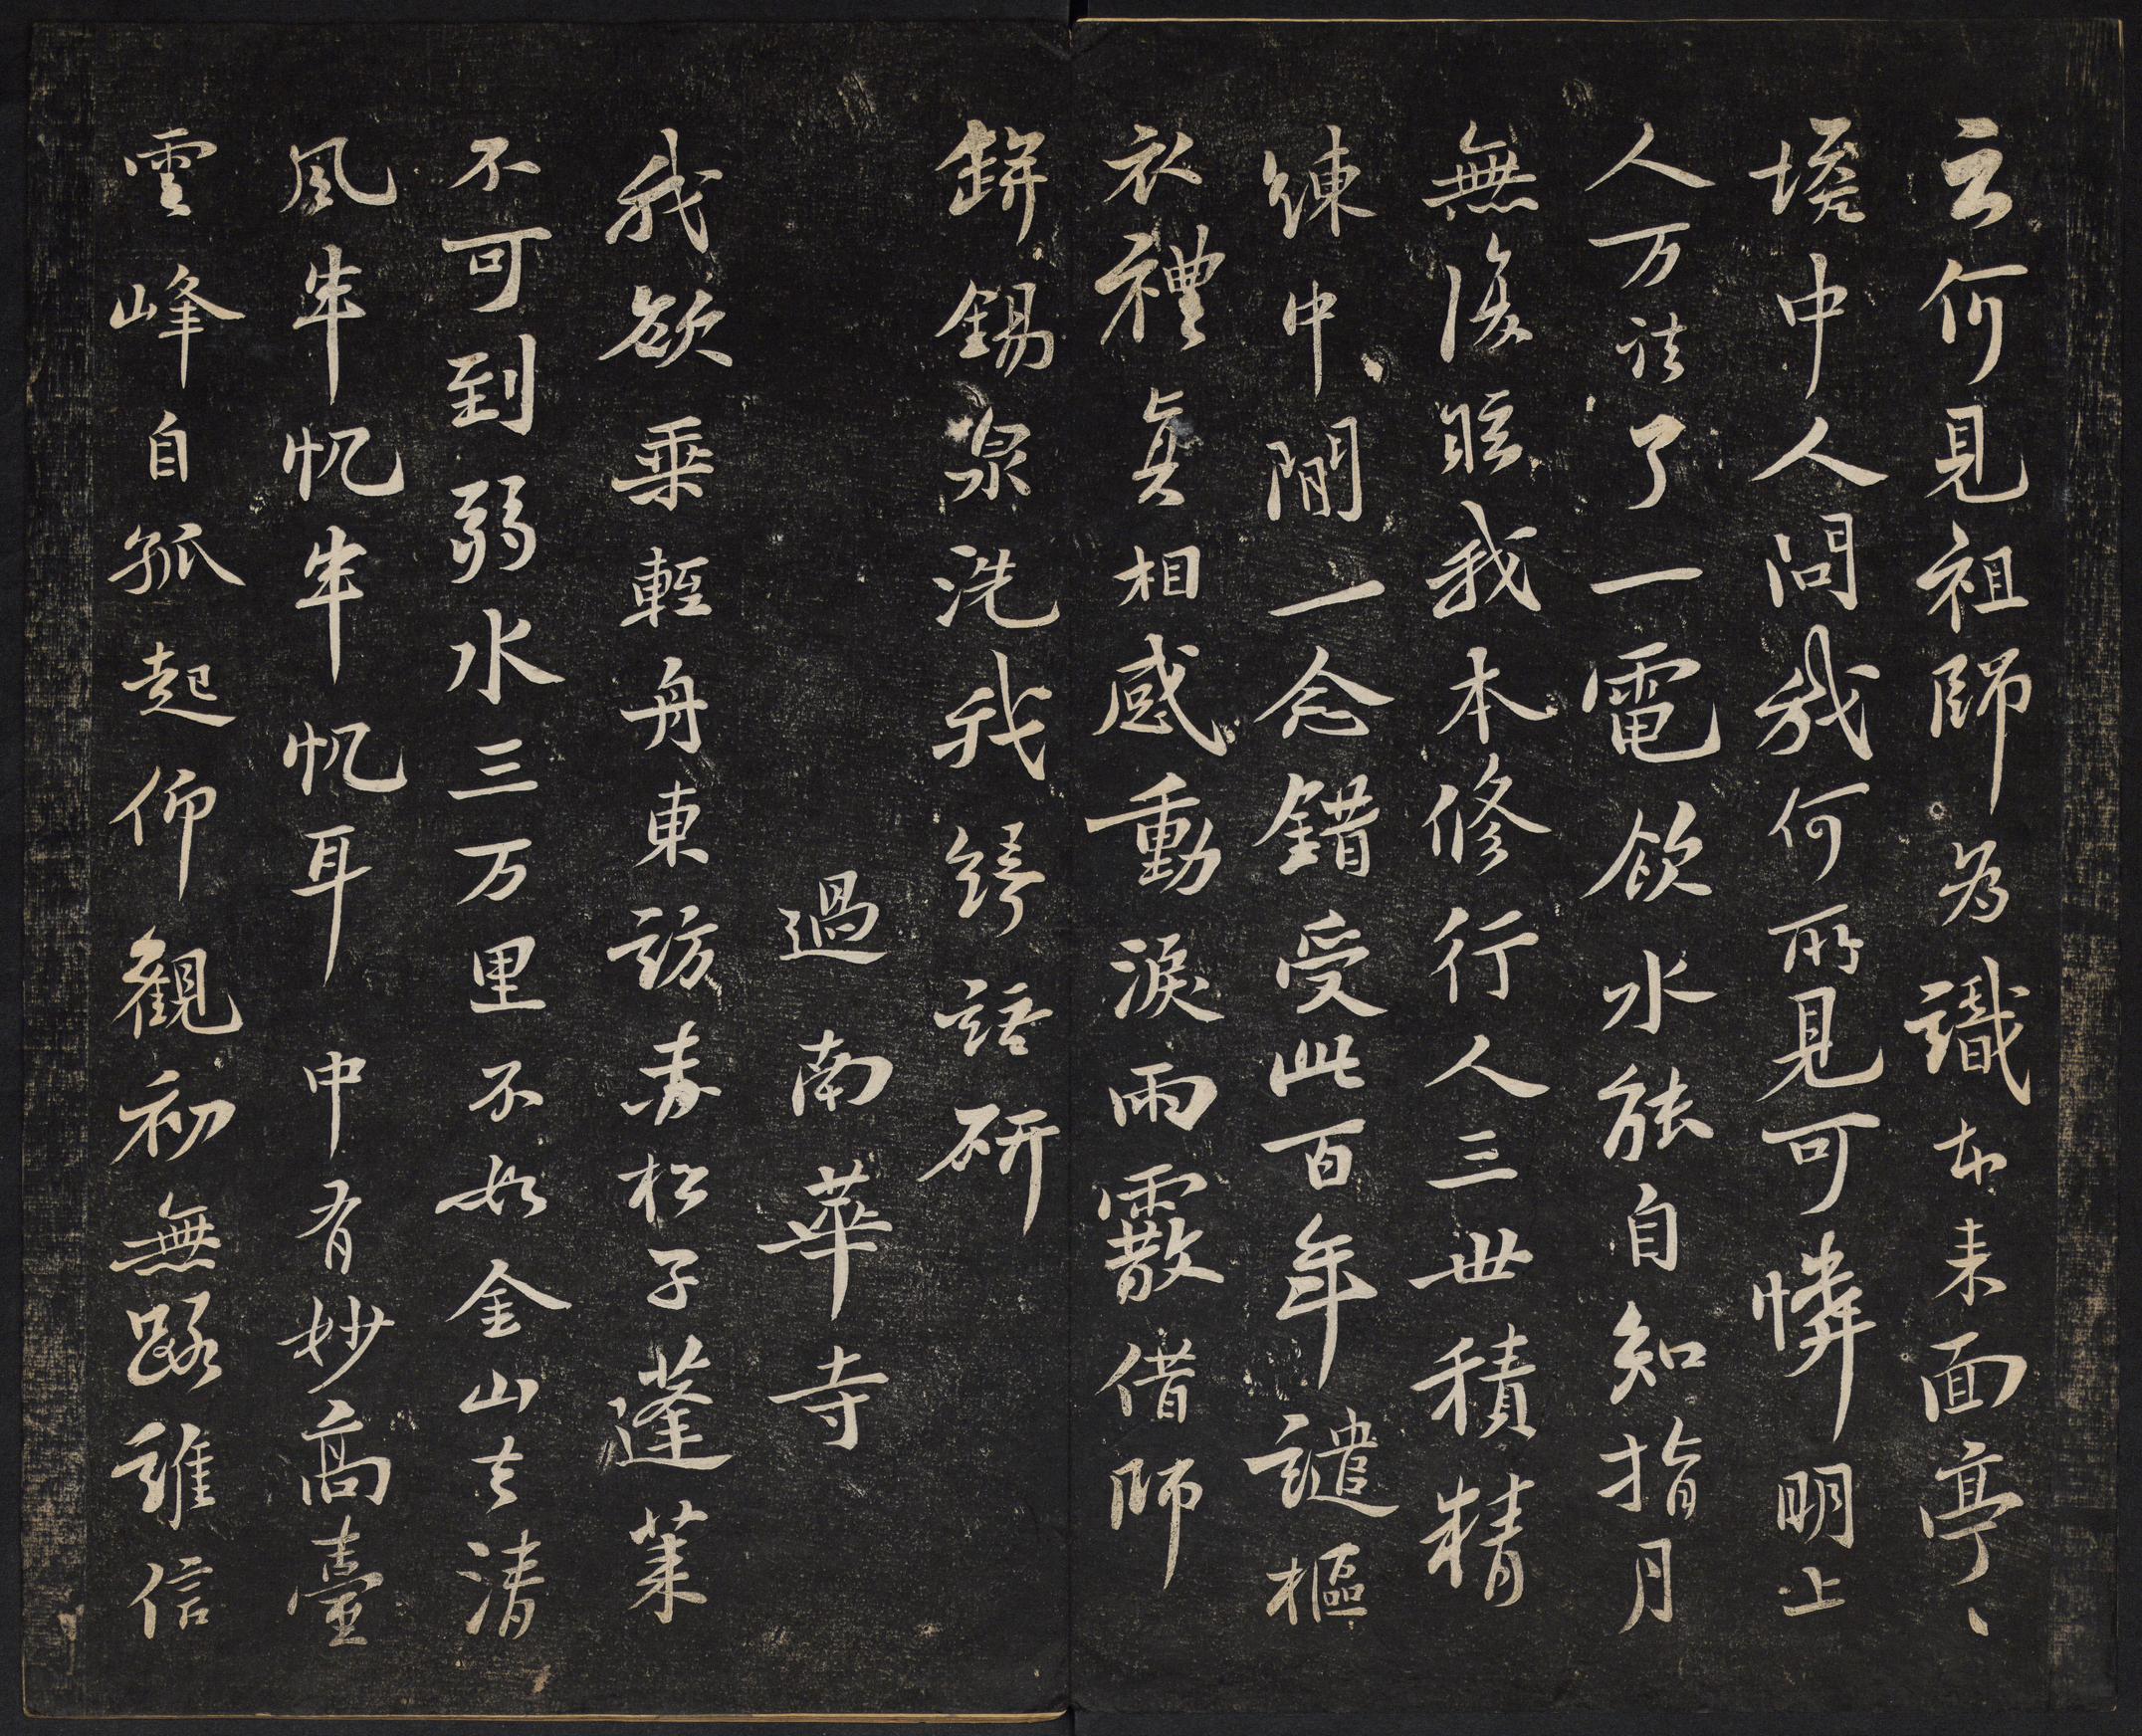 云何見祖師為識本来面亭〻
塔中人問我何所見可憐明上
人万法了一電飲水能自知指月
無復眩我本修行人三世積精
練中間一念錯受此百年譴樞
衣禮真相感動淚雨霰借師
鉼錫泉洗我綺語研
過南華寺
我欲乗輕舟東訪赤松子蓬莱
不可到弱水三万里不如金山去清
風半帆半帆耳中有妙高臺
雲峰自孤起仰觀初無路誰信